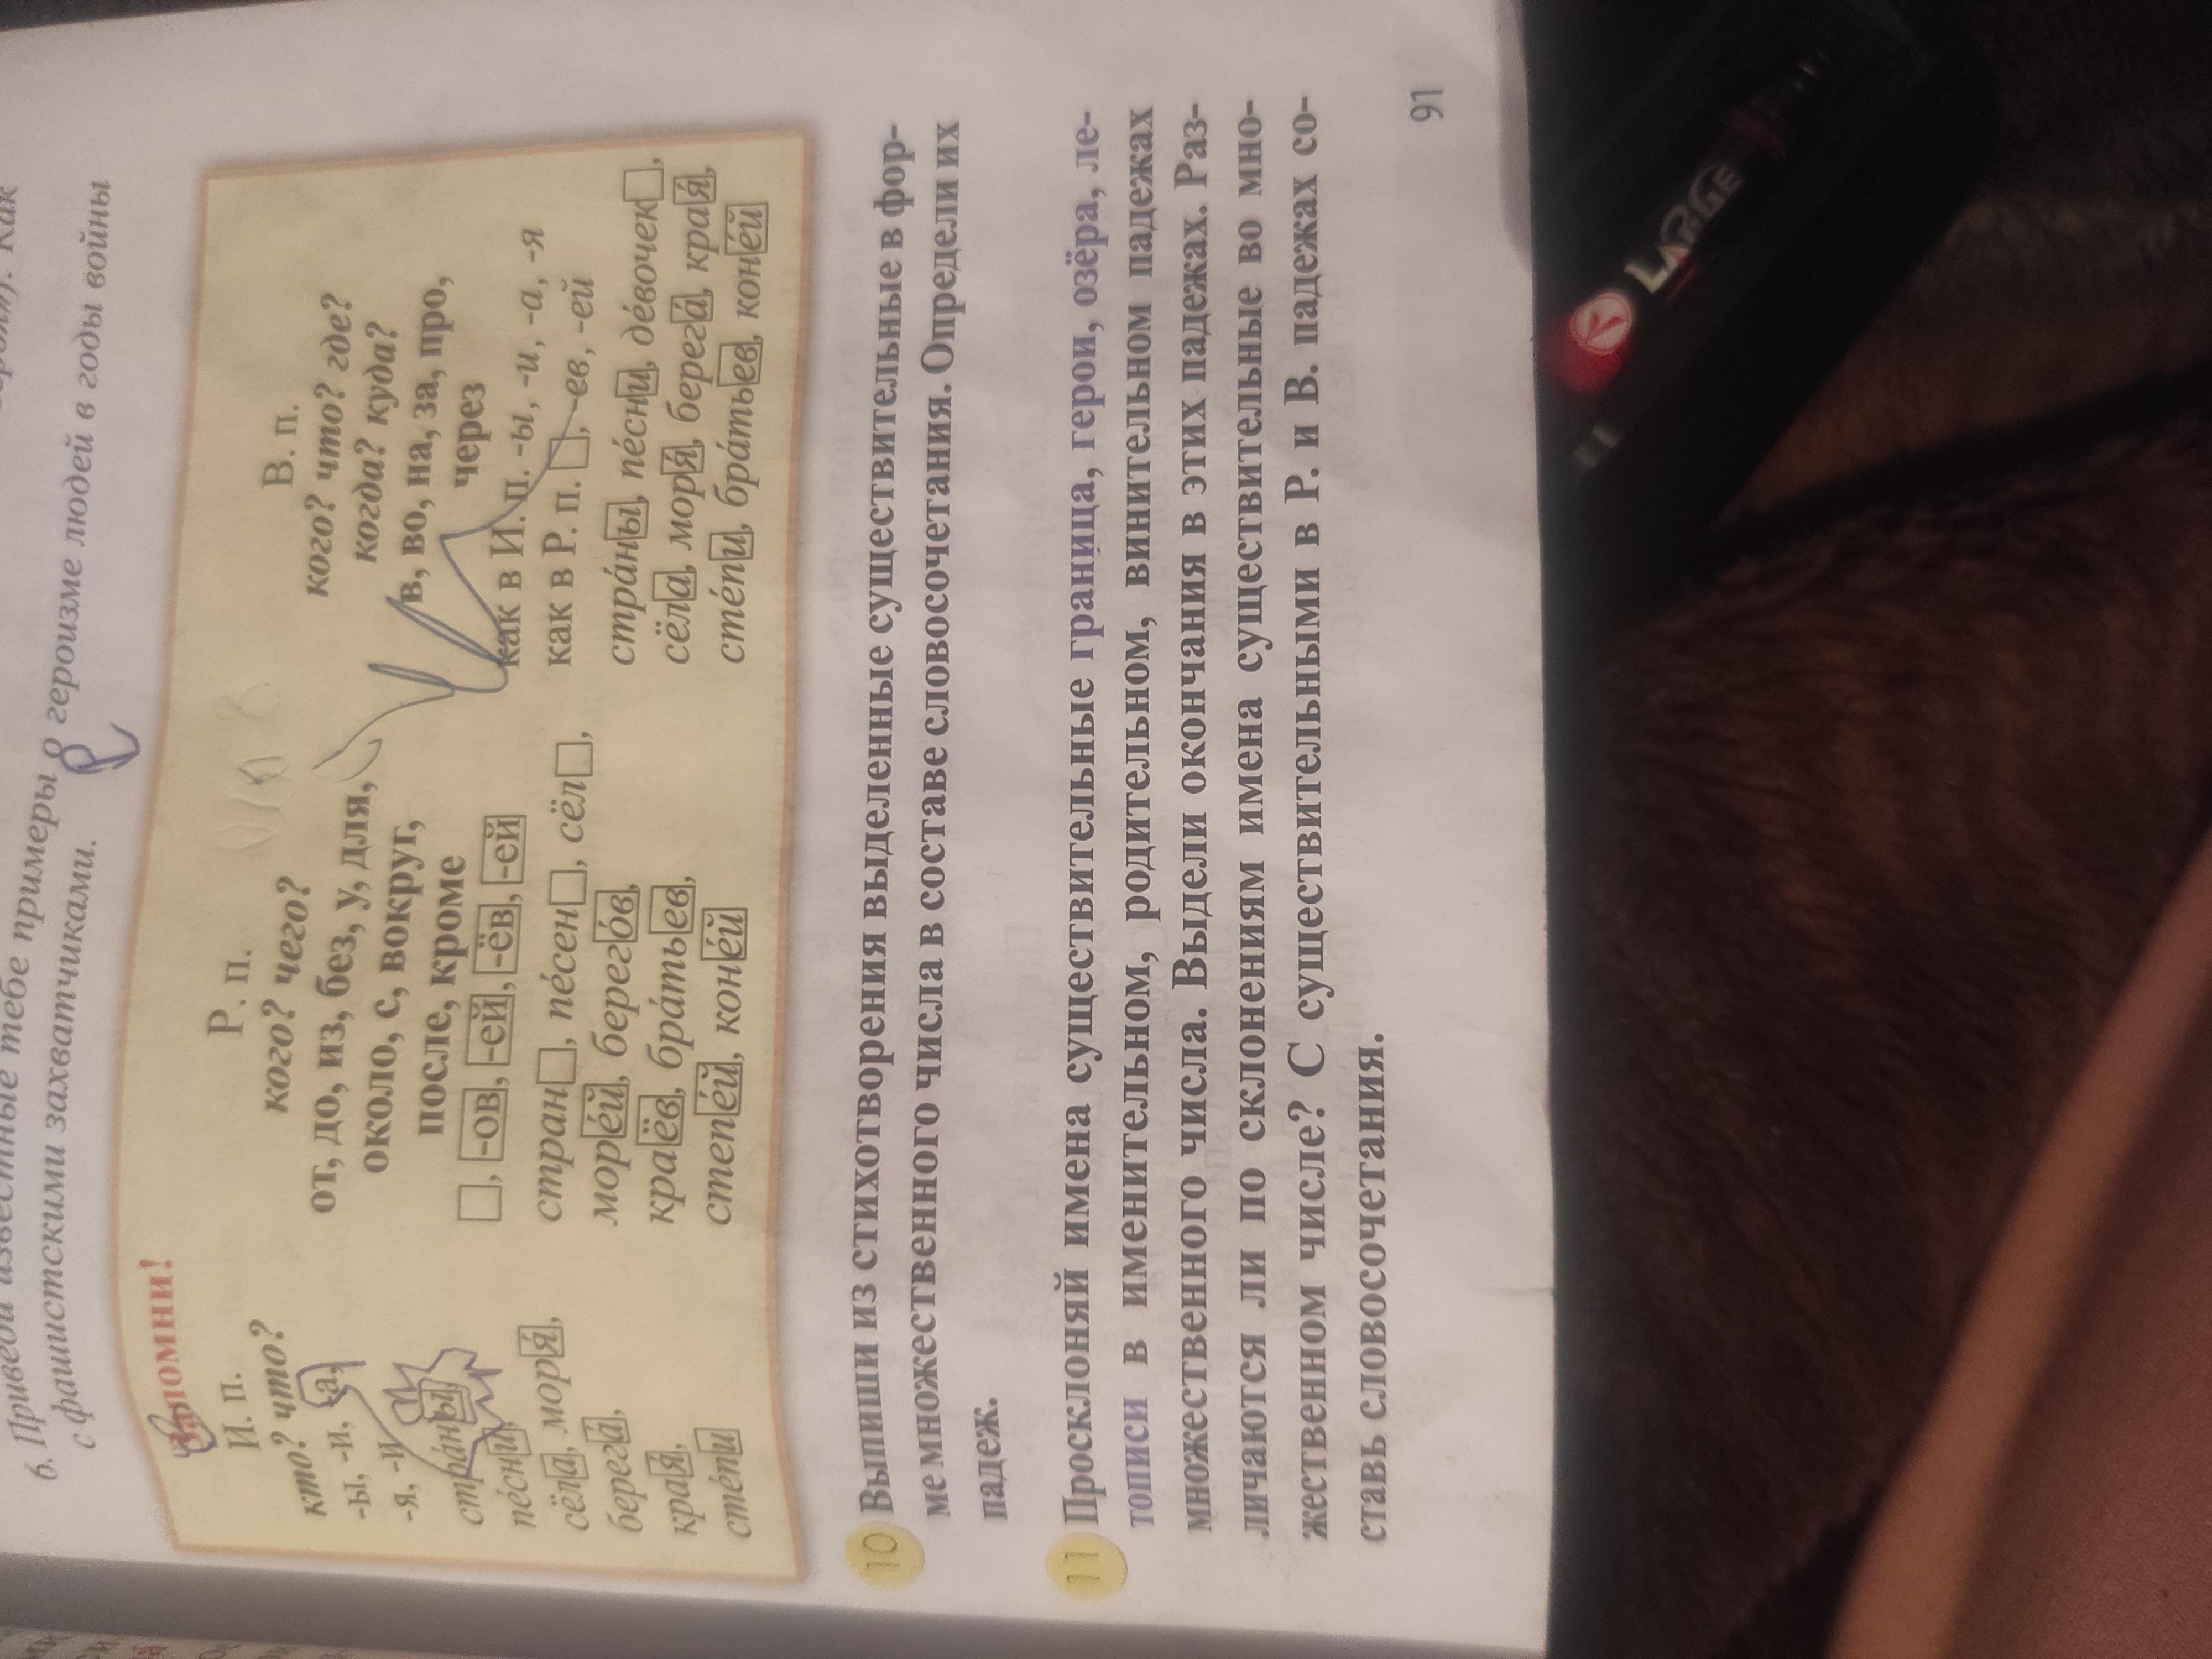 6. Приведи известные тебе примеры о героизме людей в годы войны
с фашистскими захватчиками.
Запомни!
И. п.
кто? что?
-ы, -и, -а,
-я, -и
стра́ны,
пе́сни,
сёла, моря́,
берега́,
края́,
сте́пи
Р. п.
кого? чего?
от, до, из, без, у, для,
около, с, вокруг,
после, кроме
□, -ов, -ей, -ёв, -ей
стран□, пе́сен□, сёл□,
море́й, берего́в,
краёв, бра́тьев,
степе́й, коне́й
В. п.
кого? что? где?
когда? куда?
в, во, на, за, про,
через
как в И. п. -ы, -и, -а, -я
как в Р. п. □, -ев, -ей
стра́ны, пе́сни, де́вочек□,
сёла, моря́, берега́, края́,
сте́пи, бра́тьев, коне́й
10 Выпиши из стихотворения выделенные существительные в фор-
ме множественного числа в составе словосочетания. Определи их
падеж.
11 Просклоняй имена существительные граница, герои, озёра, ле-
тописи в именительном, родительном, винительном падежах
множественного числа. Выдели окончания в этих падежах. Раз-
личаются ли по склонениям имена существительные во мно-
жественном числе? С существительными в Р. и В. падежах со-
ставь словосочетания.
91
LARGE